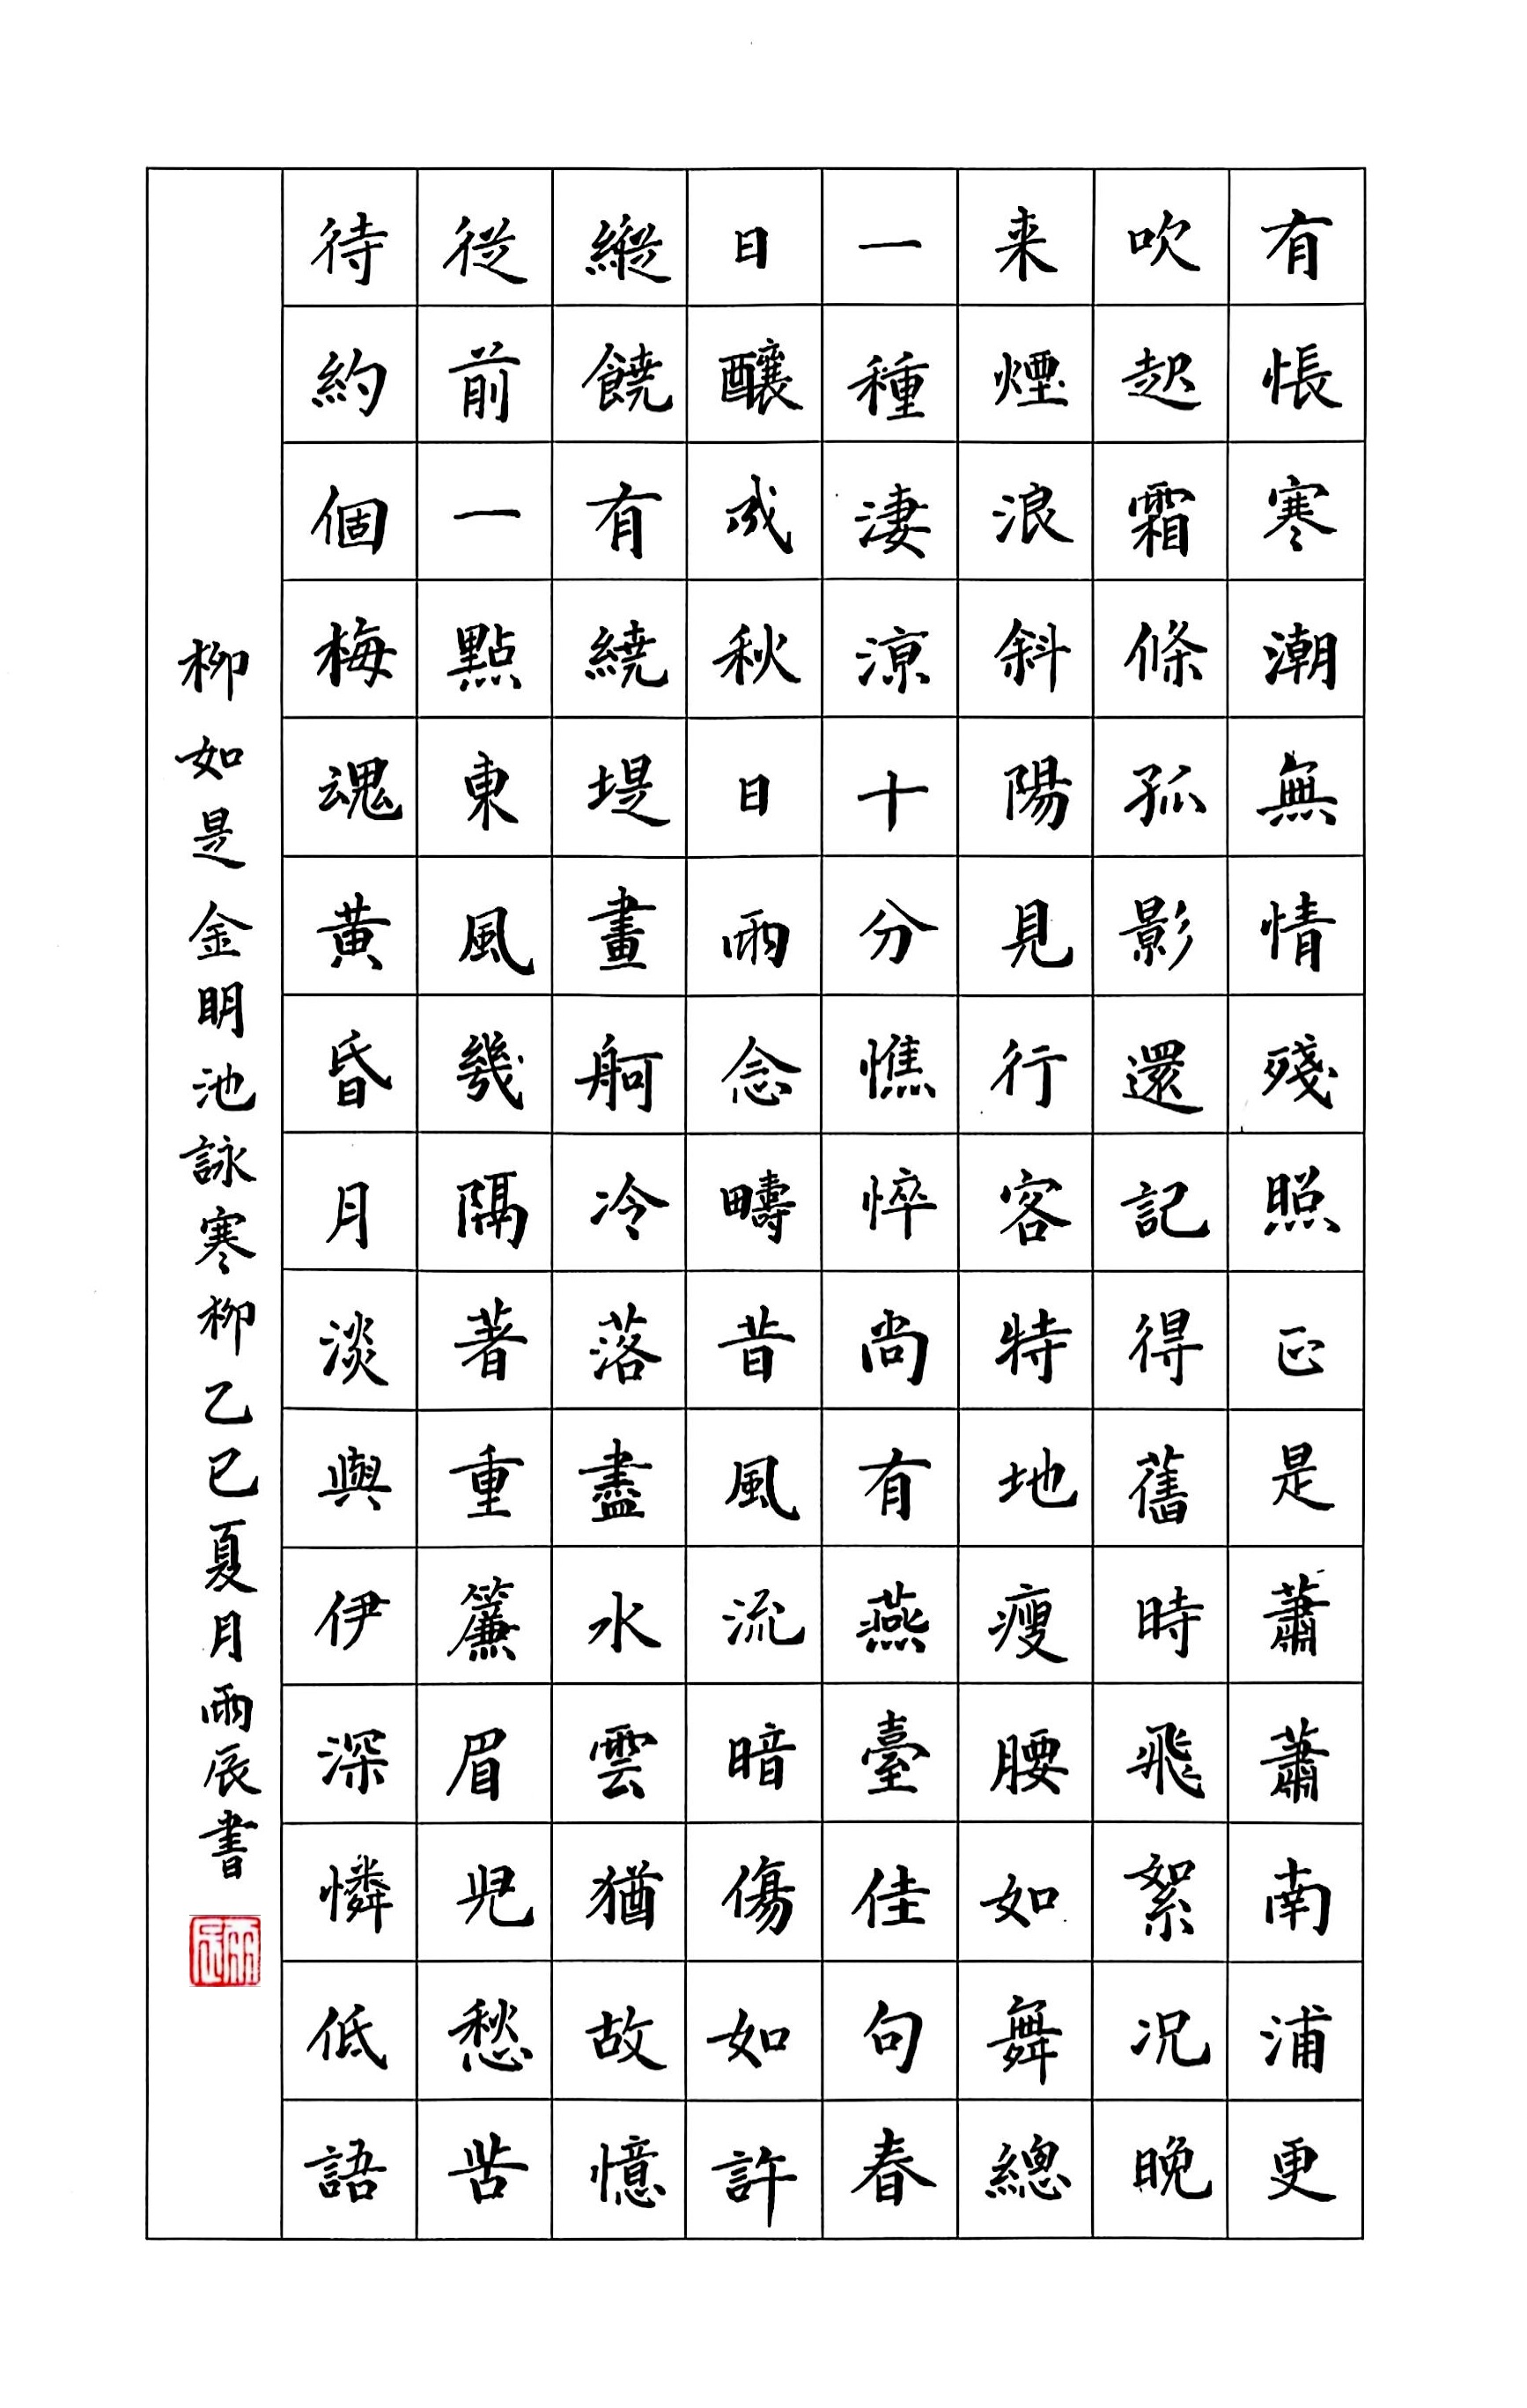 有悵寒潮無情殘照正是蕭蕭南浦更
吹起霜條孤影還記得舊時飛絮況晚
来煙浪斜陽見行客特地瘦腰如舞總
一種淒涼十分憔悴尚有燕臺佳句春
日釀成秋日雨念疇昔風流暗傷如許
縱饒有繞堤畫舸冷落盡水雲猶故憶
從前一點東風幾隔著重簾眉兒愁苦
待約個梅魂黃昏月淡與伊深憐低語
柳如是金明池詠寒柳乙巳夏月雨辰書
雨辰